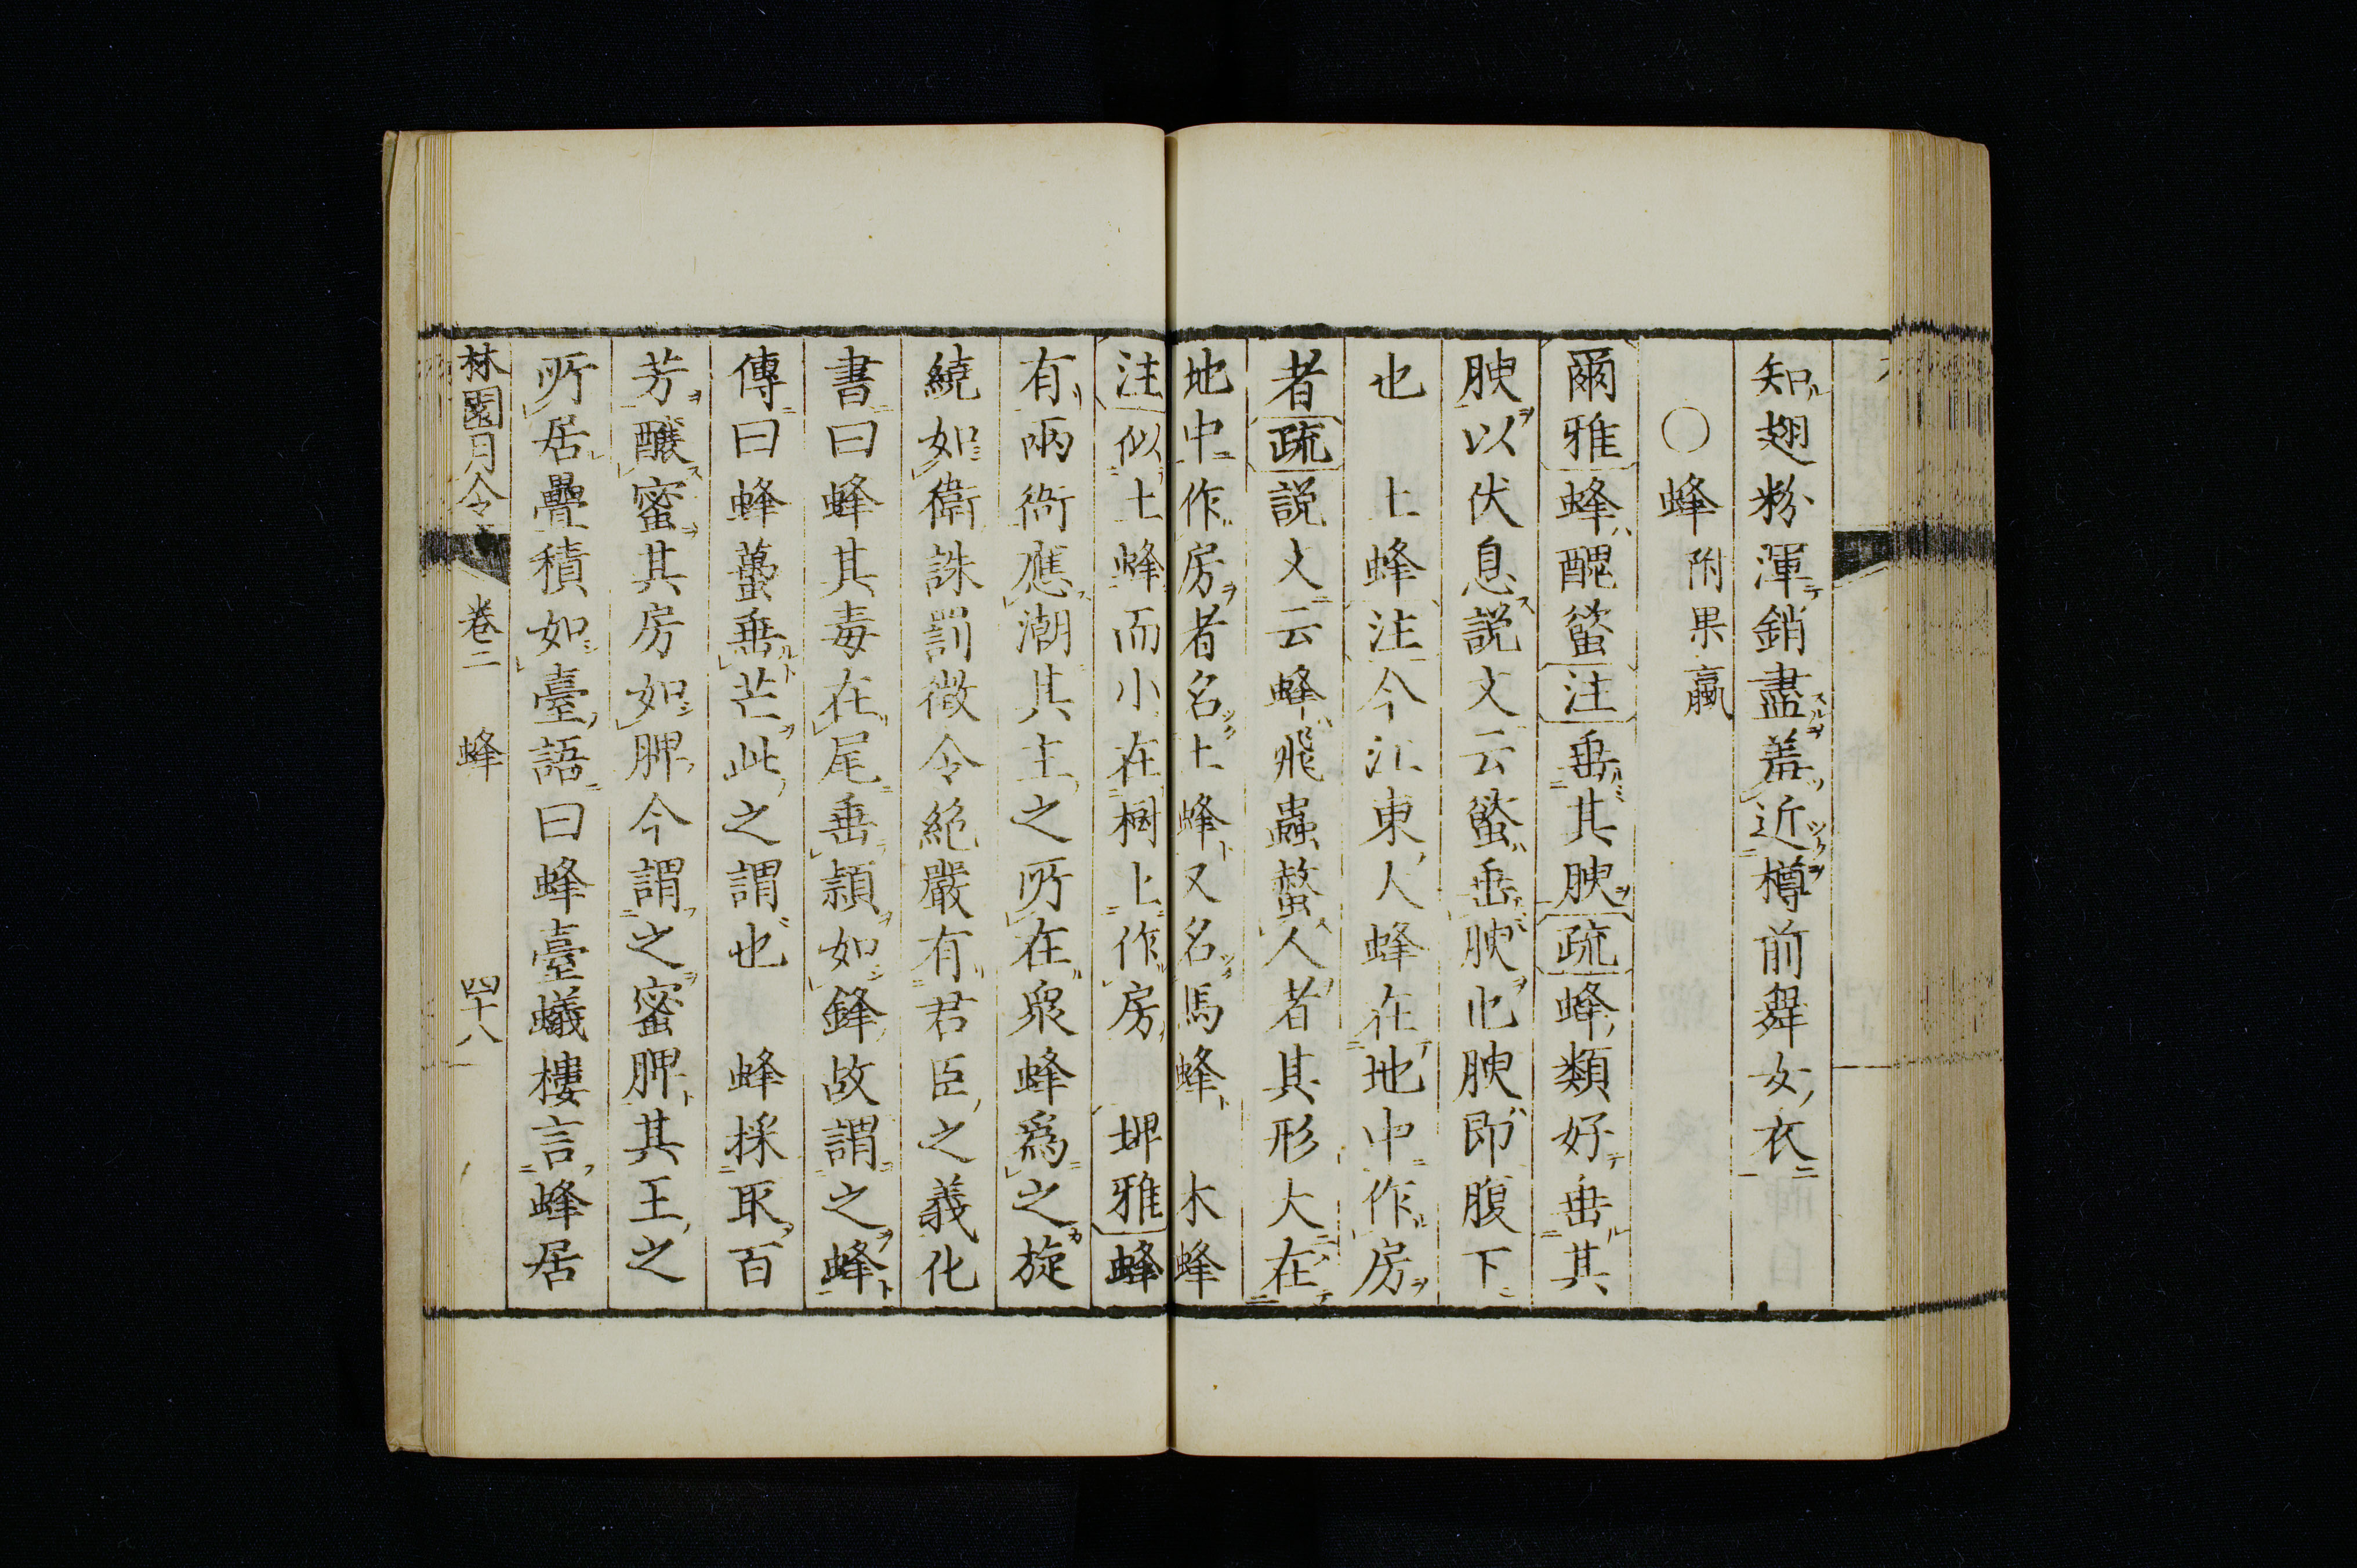 知翅粉渾銷盡羞近樽前舞女衣
〇蜂附果蠃
爾雅蜂醜螸注垂其腴疏蜂類好垂其
腴以伏息説文云螸垂腴也腴即腹下
也　土蜂注今江東人蜂在地中作房
者疏説文云蜂飛蟲螫人者其形大在
地中作房者名土蜂又名馬蜂　木蜂
注似土蜂而小在樹上作房　埤雅蜂
有兩衙應潮其主之所在衆蜂爲之旋
繞如衛誅罰徴令絶嚴有君臣之義化
書曰蜂其毒在尾垂穎如鋒故謂之蜂
傳曰蜂蠆垂芒此之謂也　蜂採取百
芳釀蜜其房如脾今謂之蜜脾其王之
所居疊積如臺語曰蜂臺蟻樓言蜂居
林園月令　卷二　蜂　四十八